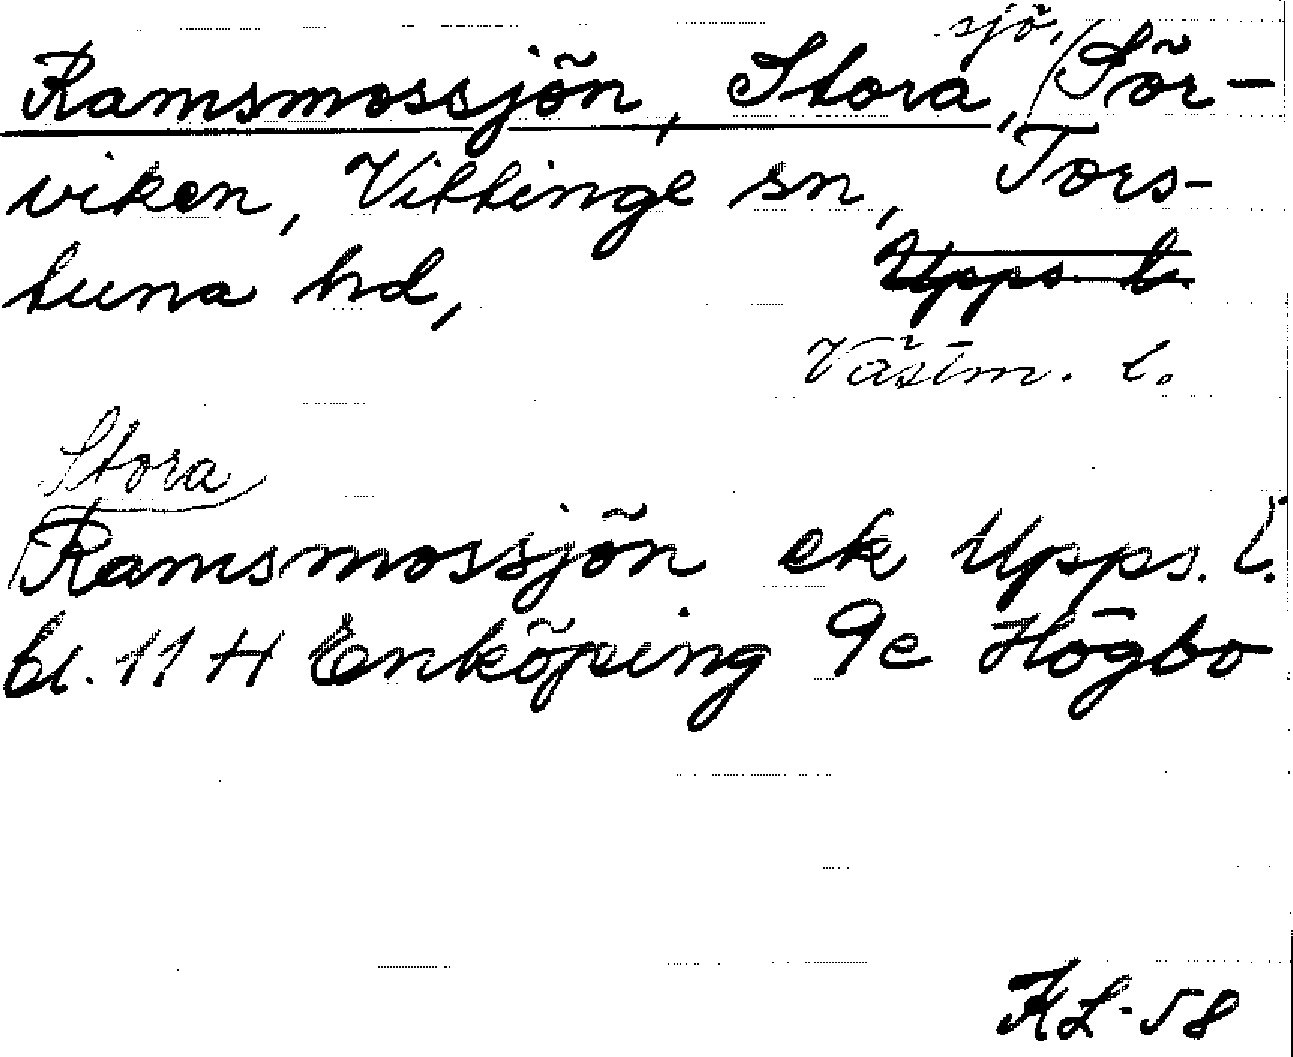 Ramsmossjön, Stora, sjö, Sör-
viken, Vittinge sn, Tors-
tuna hd, Upps l.
Västm. l.
Stora
Ramsmossjön ek Upps. l.
bl. 11 H Enköping 9e Högbo
KL-58